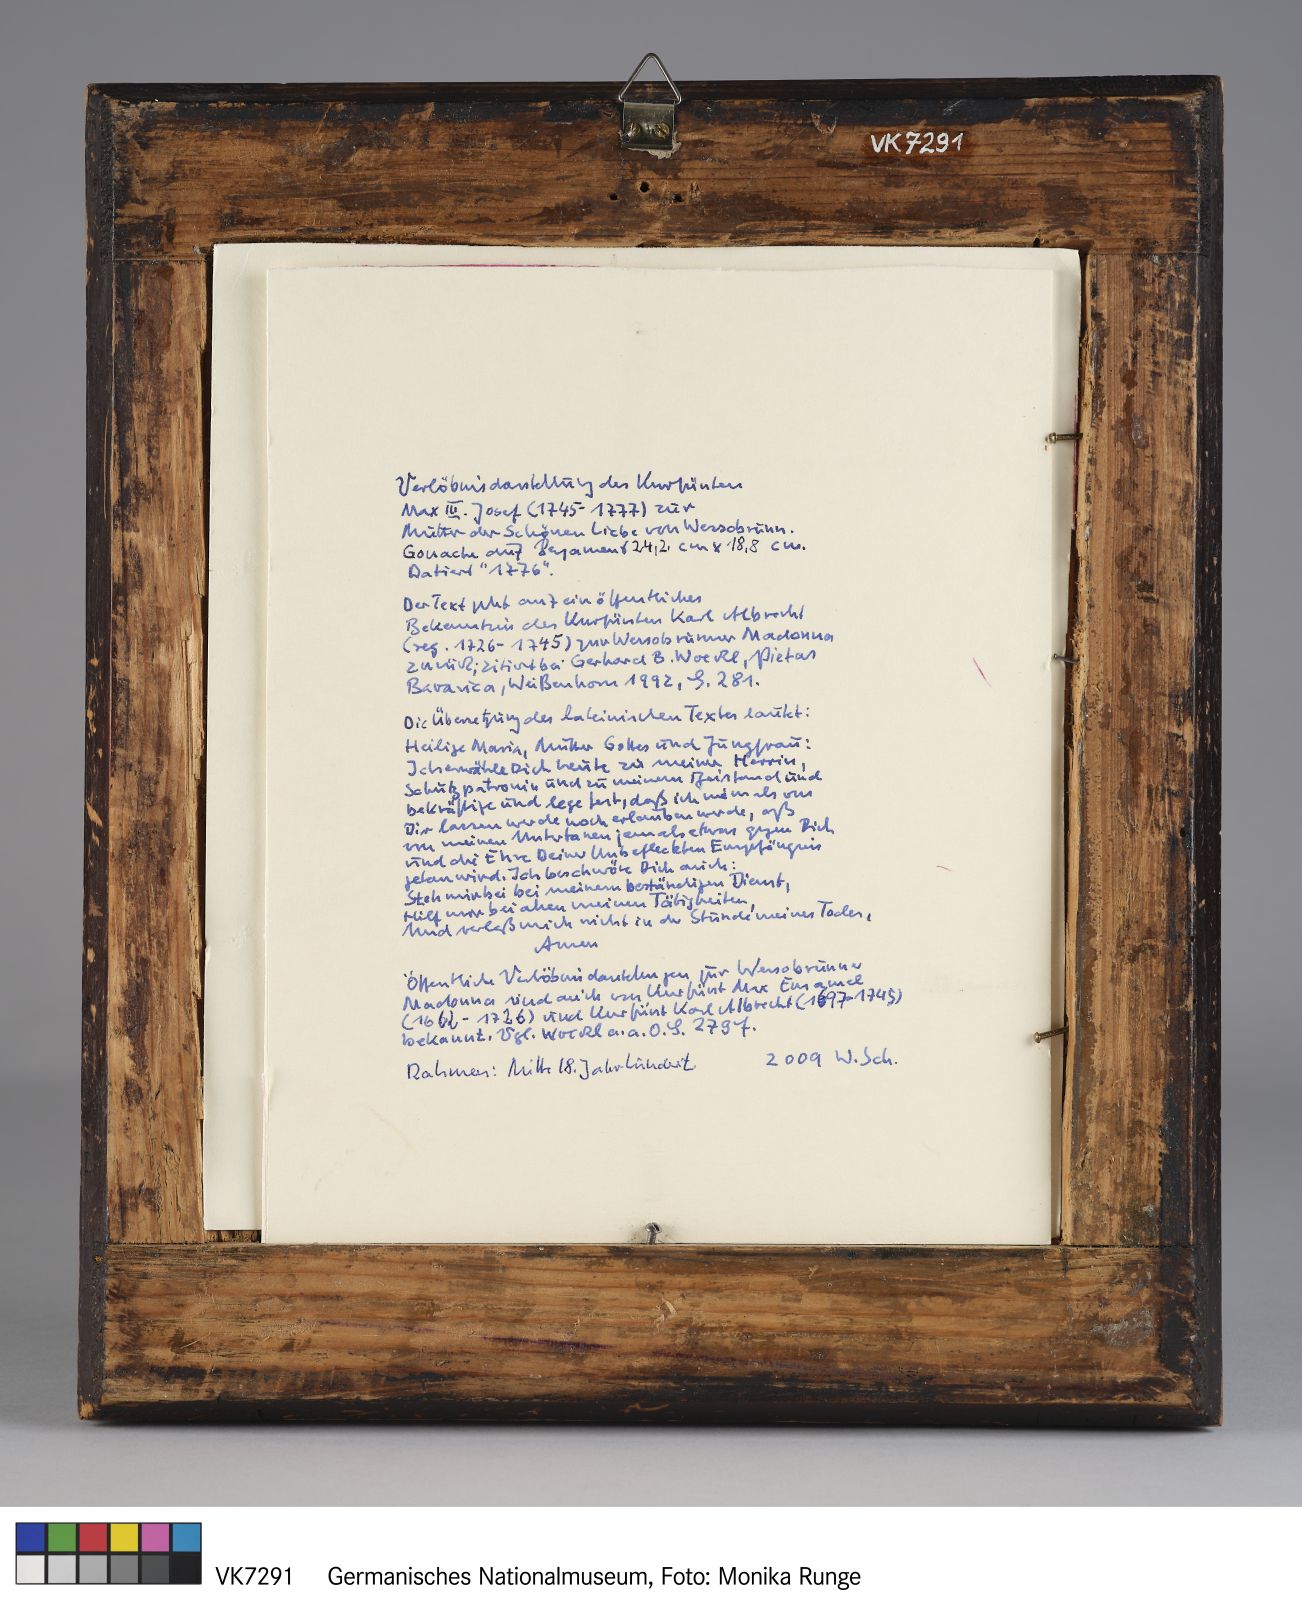 VK 7291
Verlöbnisdarstellung des Kurfürsten
Max III. Josef (1745-1777) zur
Mutter der Schönen Liebe von Wessobrunn.
Gouache auf Pergament 24,2 cm x 18,8 cm.
Datiert "1776".
Der Text geht auf ein öffentliches
Bekenntnis des Kurfürsten Karl Albrecht
(reg. 1726-1745) zur Wessobrunner Madonna
zurück; zitiert bei Gerhard B. Woeckl, Pietas
Bavarica, Weißenhorn 1992, S. 281.
Die Übersetzung des lateinischen Textes lautet:
Heilige Maria, Mutter Gottes und Jungfrau:
Ich erwähle Dich heute zu meiner Herrin,
Schutzpatronin und zu meinem Beistand und
bekräftige und lege fest, daß ich niemals von
Dir lassen werde noch erlauben werde, daß
von meinen Untertanen jemals etwas gegen Dich
und die Ehre Deiner Unbefleckten Empfängnis
getan wird. Ich beschwöre Dich auch:
Steh mir bei bei meinem beständigen Dienst,
Hilf mir bei allen meinen Tätigkeiten,
Und verlaß mich nicht in der Stunde meines Todes,
Amen
Öffentliche Verlöbnisdarstellungen zur Wessobrunner
Madonna sind auch von Kurfürst Max Emanuel
(1662-1726) und Kurfürst Karl Albrecht (1697-1745)
bekannt. Vgl. Woeckl a.a.O. S. 279f.
Rahmen: Mitte 18. Jahrhundert 2009 W. Sch.
VK7291 Germanisches Nationalmuseum, Foto: Monika Runge